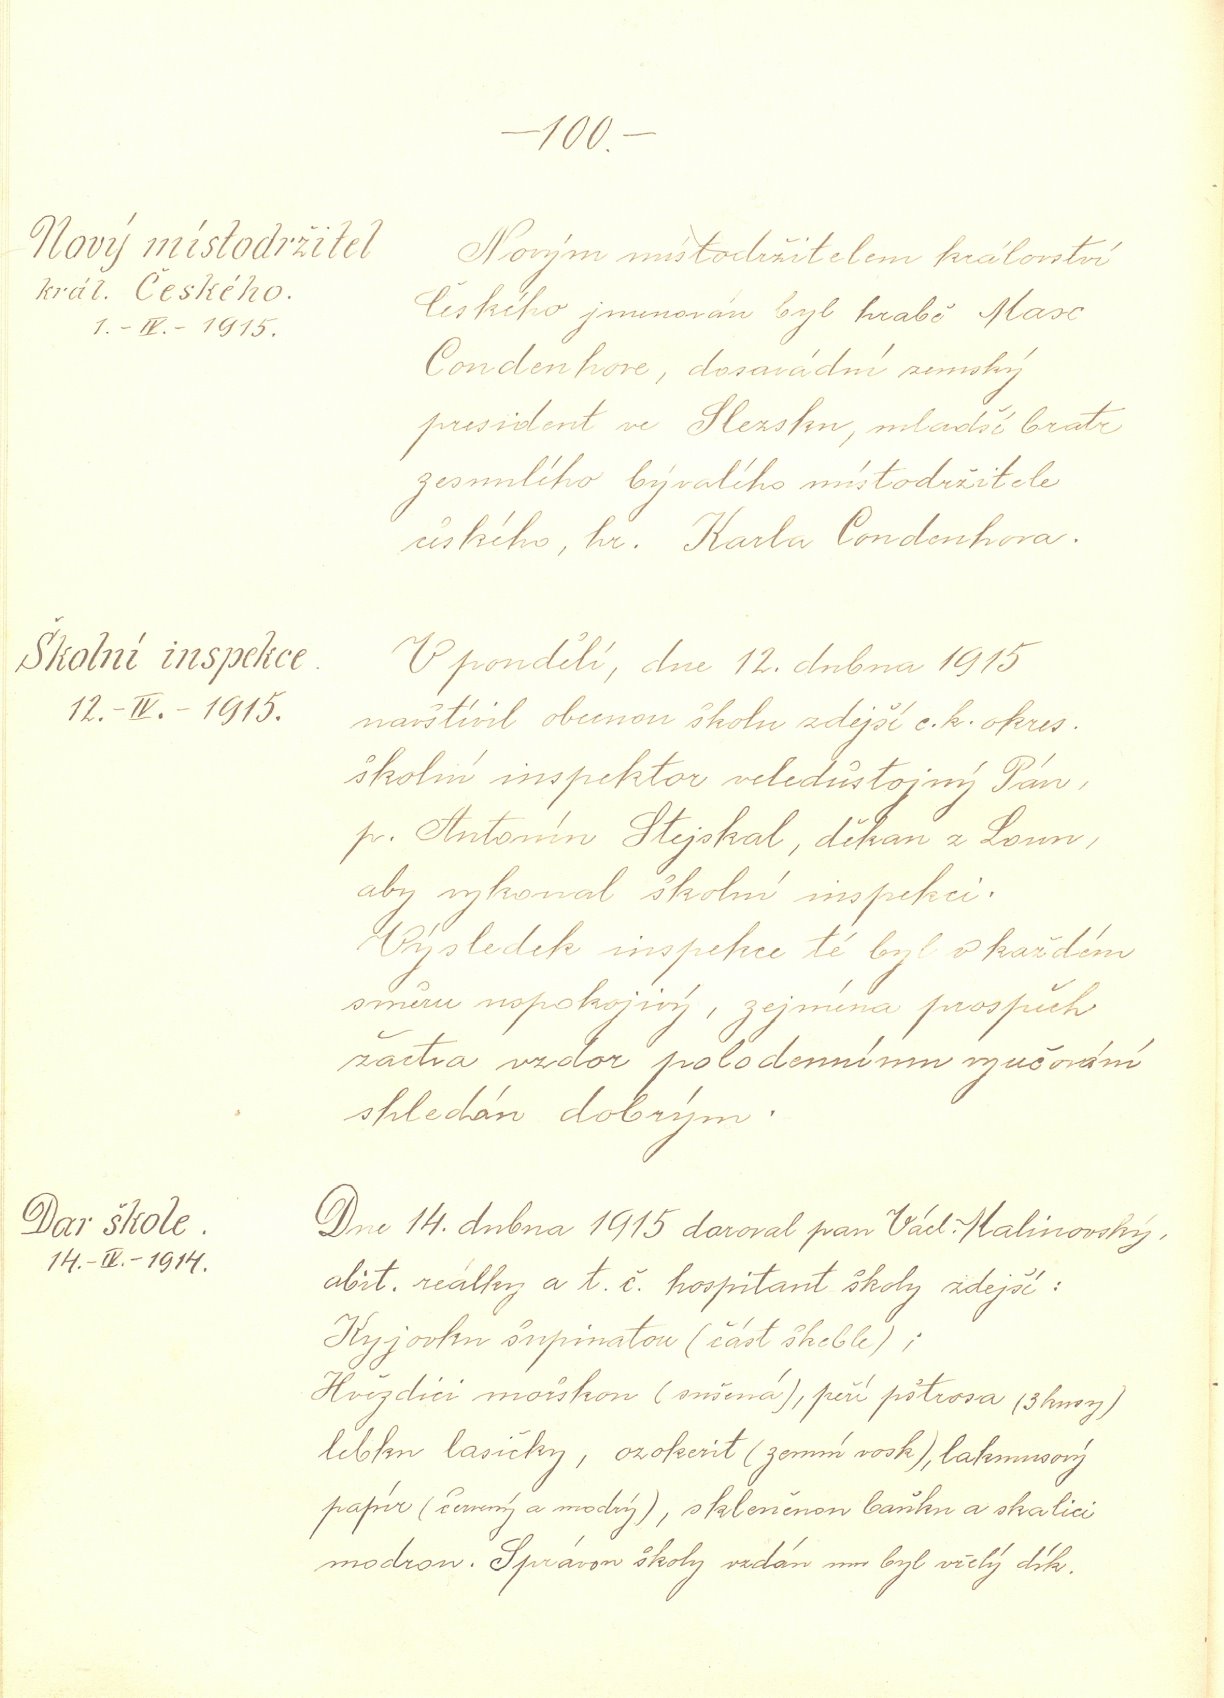 —100.—
Nový místodržitel
král. Českého.
1.-IV.-1915.
Novým místodržitelem království
Českého jmenován byl hrabě Max
Coudenhove, dosavádní zemský
president ve Slezsku, mladší bratr
zesnulého bývalého místodržitele
českého, hr. Karla Coudenhova.
Školní inspekce.
12.-IV.-1915.
V pondělí, dne 12. dubna 1915
navštívil obecnou školu zdejší c.k. okres.
školní inspektor veledůstojný Pán,
p. Antonín Stejskal, děkan z Loun,
aby vykonal školní inspekci.
Výsledek inspekce té byl v každém
směru uspokojivý, zejména prospěch
žactva vzdor polodennímu vyučování
shledán dobrým.
Dar škole.
14.-IV.-1914.
Dne 14. dubna 1915 daroval pan Václ. Malinovský,
abit. reálky a t. č. hospitant školy zdejší:
Kyjovku šupinatou (část škeble);
Hvězdici mořskou (sušená), peří pštrosa (3 kusy)
lebku lasičky, ozokerit (zemní vosk), lakmusový
papír (červený a modrý), skleněnou baňku a skalici
modrou. Správou školy vzdán mu byl vřelý dík.